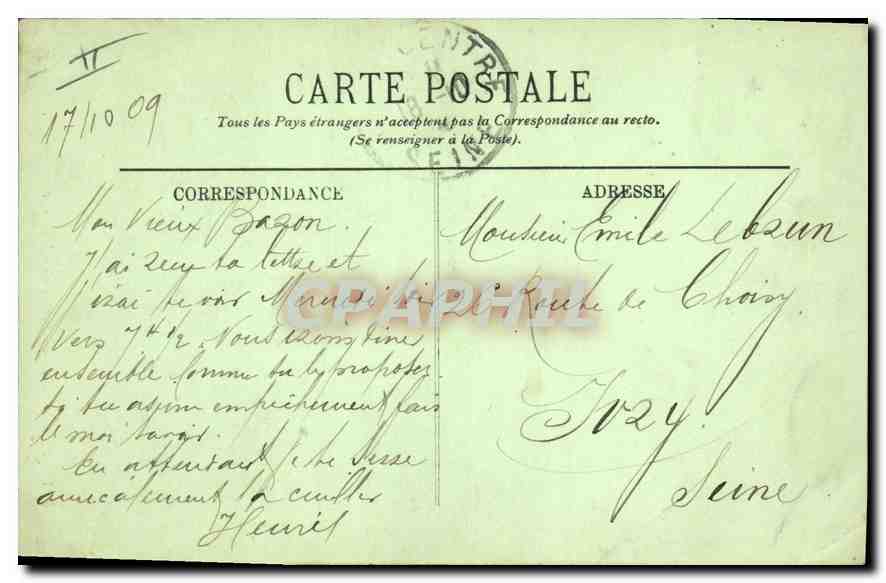 II
17/10 09
CENTRE
SEINE
CARTE POSTALE
Tous les Pays étrangers n'acceptent pas la Correspondance au recto.
(Se renseigner à la Poste).
CORRESPONDANCE
Mon Vieux Bazon.
J'ai reçu ta lettre et
j'irai te voir Mercredi soir
vers 7h 1/2. Nous irons diner
ensemble comme tu le proposes.
Si tu as un empêchement fais
le moi savoir.
En attendant je te serre
amicalement la cuiller
Henri
ADRESSE
Monsieur Emile Lebrun
26 Route de Choisy.
Ivry.
Seine
CPAPHIL